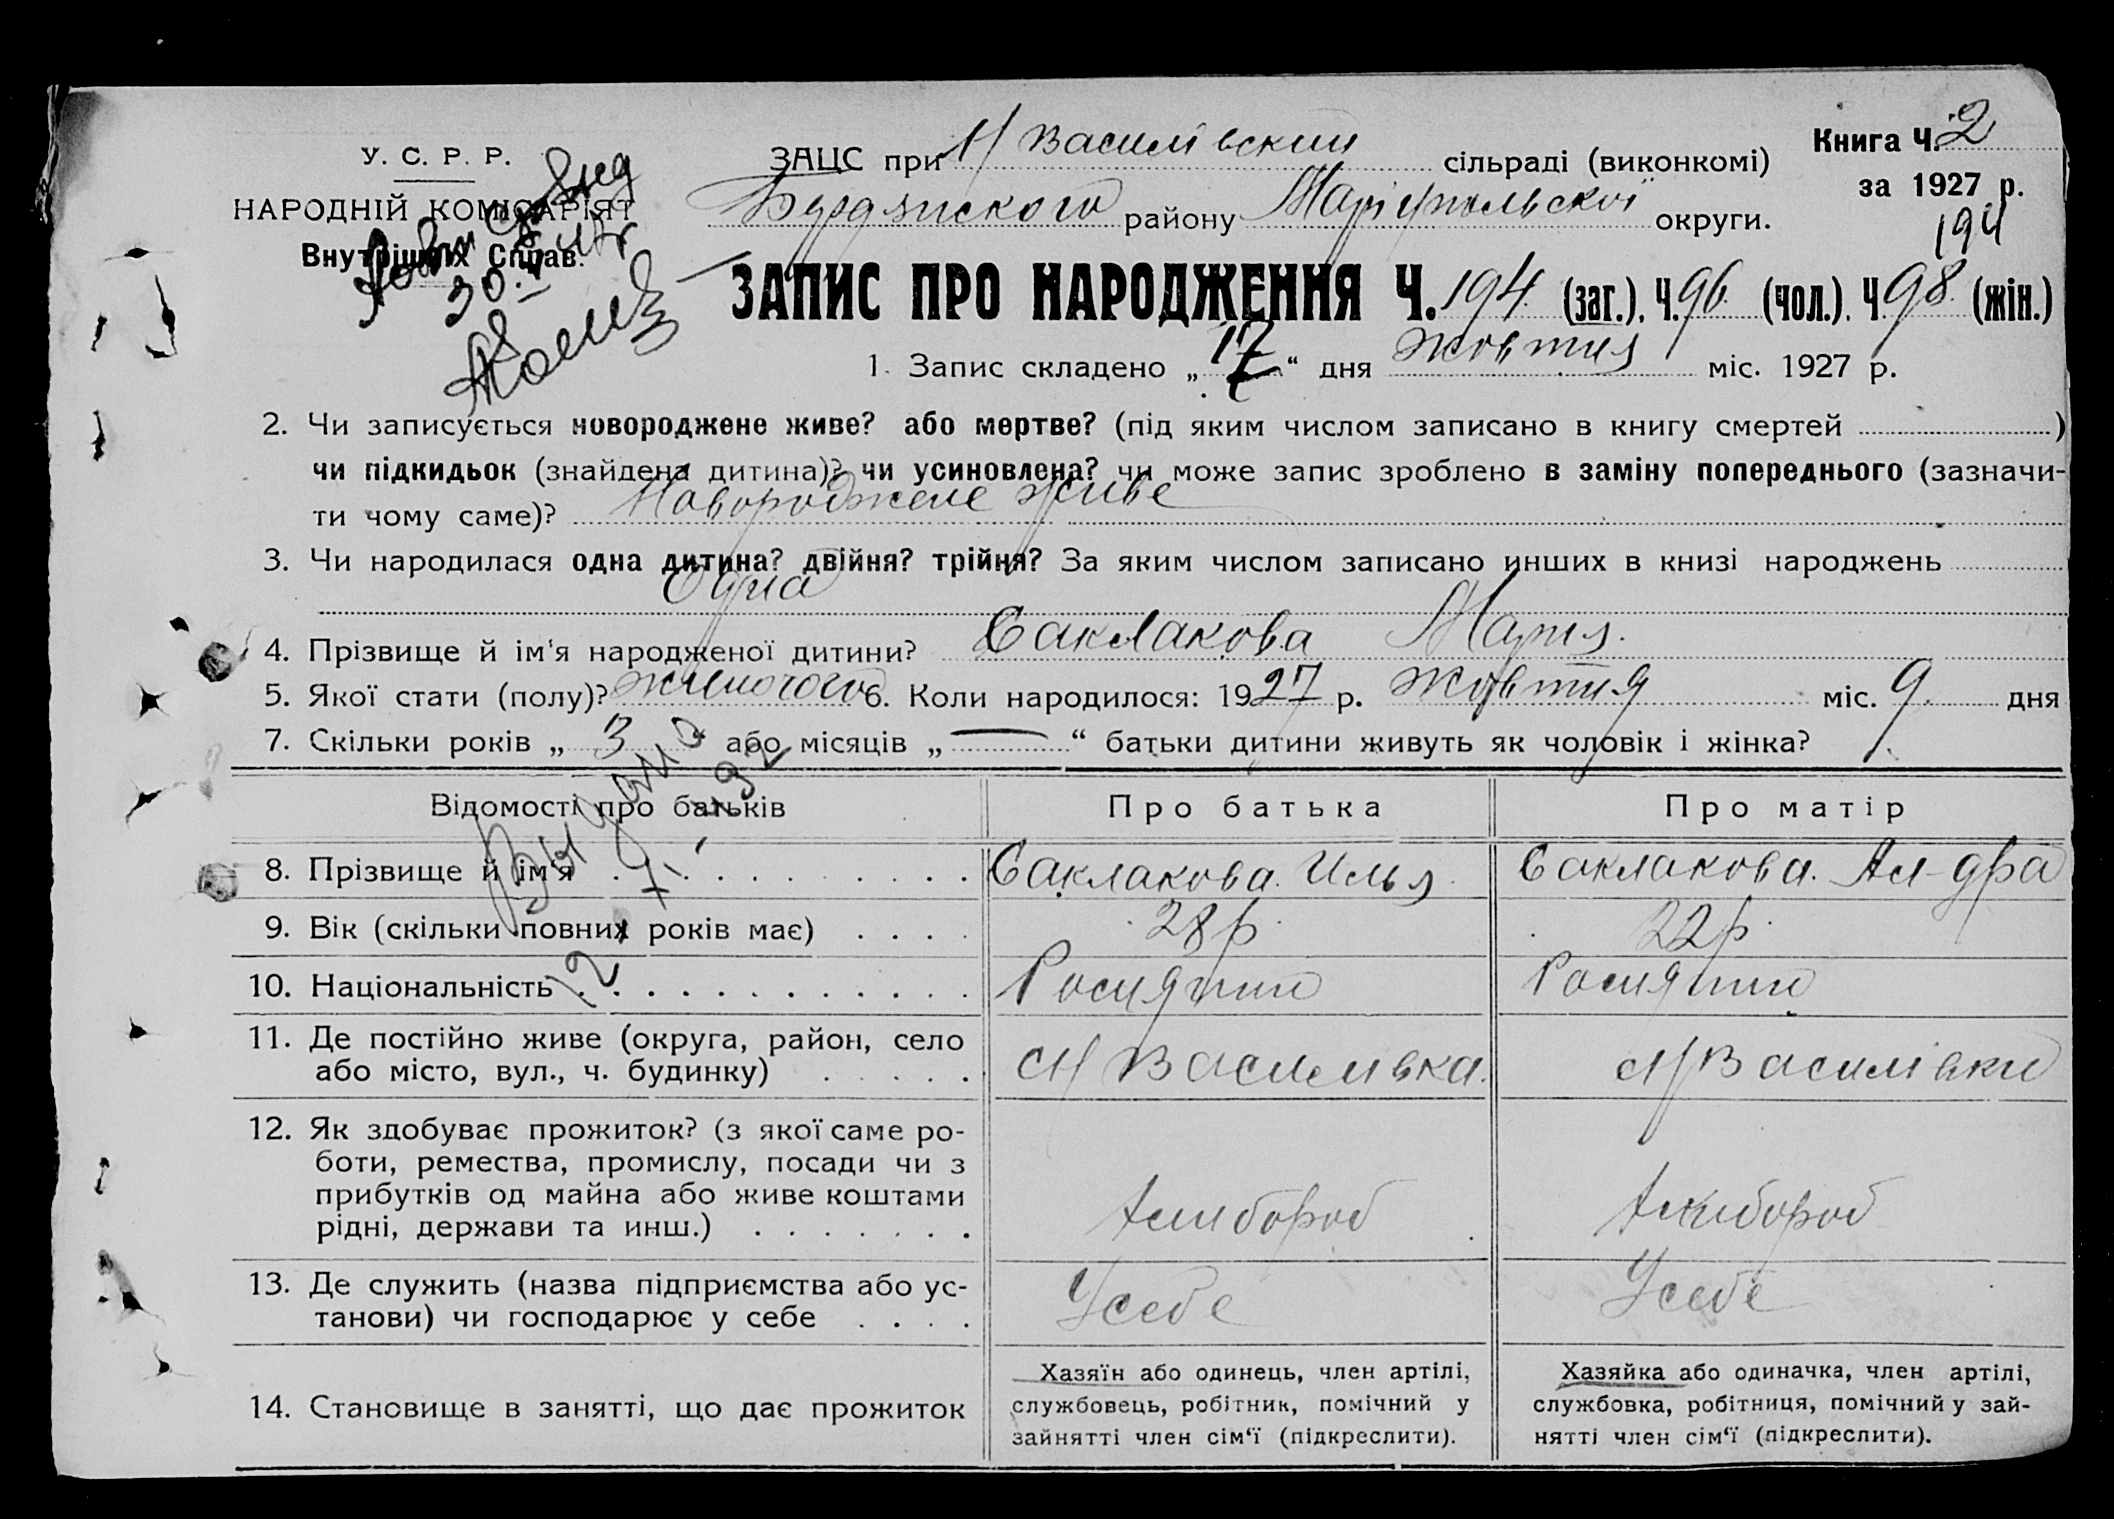 У. С. Р. Р.
НАРОДНІЙ КОМІСАРІЯТ
Внутрішніх Справ.
ЗАЦС при Н Василівский сільраді (виконкомі)
Книга Ч. 2
за 1927 р.
Бердянского району Маріупольскої округи.
194
ЗАПИС ПРО НАРОДЖЕННЯ Ч. 194 (заг.), Ч. 96 (чол.). Ч 98 (жін.)
1. Запис складено „17“ дня жовтня міс. 1927 р.
2. Чи записується новороджене живе? або мертве? (під яким числом записано в книгу смертей )
чи підкидьок (знайдена дитина)? чи усиновлена? чи може запис зроблено в заміну попереднього (зазначи-
ти чому саме)? Новороджене живе
3. Чи народилася одна дитина? двійня? трійня? За яким числом записано инших в книзі народжень
Одна
4. Прізвище й ім'я народженої дитини? Саклакова Мария.
5. Якої стати (полу)? жиночого 6. Коли народилося: 1927 р. жовтня міс. 9 дня
7. Скільки років „ 3 “ або місяців „ — “ батьки дитини живуть як чоловік і жінка?
Відомості про батьків Про батька Про матір
8. Прізвище й ім'я Саклакова. Илья Саклакова. Ал-дра
9. Вік (скільки повних років має) 28 р. 22 р.
10. Національність Росиянин Росиянин
11. Де постійно живе (округа, район, село
або місто, вул., ч. будинку) Н Василивка. Н Василівки
12. Як здобуває прожиток? (з якої саме ро-
боти, ремества, промислу, посади чи з
прибутків од майна або живе коштами
рідні, держави та инш.) Хлибороб Хлибороб
13. Де служить (назва підприємства або ус-
танови) чи господарює у себе Усебе Усебе
14. Становище в занятті, що дає прожиток
Хазяїн або одинець, член артілі,
службовець, робітник, помічний у
зайнятті член сім'ї (підкреслити).
Хазяйка або одиначка, член артілі,
службовка, робітниця, помічний у зай-
нятті член сім'ї (підкреслити).